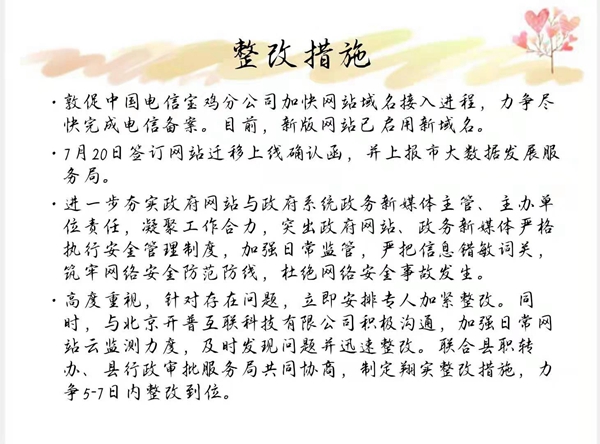 整改措施
·敦促中国电信宝鸡分公司加快网站域名接入进程，力争尽
快完成电信备案。目前，新版网站已启用新域名。
·7月20日签订网站迁移上线确认函，并上报市大数据发展服
务局。
·进一步夯实政府网站与政府系统政务新媒体主管、主办单
位责任，凝聚工作合力，突出政府网站、政务新媒体严格
执行安全管理制度，加强日常监管，严把信息错敏词关，
筑牢网络安全防范防线，杜绝网络安全事故发生。
·高度重视，针对存在问题，立即安排专人加紧整改。同
时，与北京开普互联科技有限公司积极沟通，加强日常网
站云监测力度，及时发现问题并迅速整改。联合县职转
办、县行政审批服务局共同协商，制定翔实整改措施，力
争5-7日内整改到位。